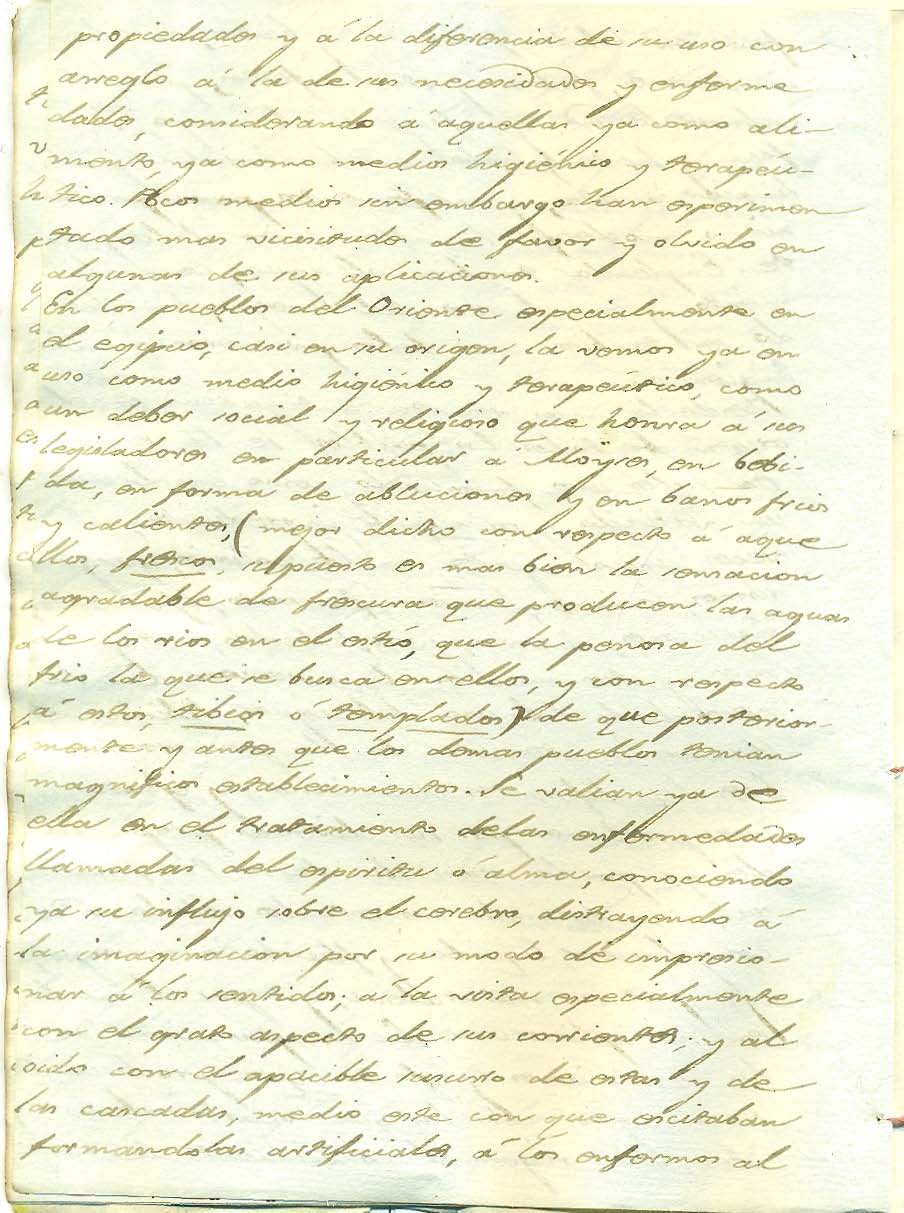 propiedades y á la diferencia de su uso con
arreglo á la de sus necesidades y enferme
dades, considerando á aquellas ya como ali-
mento, ya como medios higiénico y terapéu-
tico. Pocos medios sin embargo han esperimen
tado mas vicisitudes de favor y olvido en
algunas de sus aplicaciones.
En los pueblos del Oriente especialmente en
el egipcio, casi en su origen, la vemos ya en
uso como medio higiénico y terapéutico, como
un deber social y religioso que honra á sus
legisladores en particular á Moÿses, en bebi-
da, en forma de abluciones y en baños frios
y calientes, (mejor dicho con respecto á aque
llos, frescos, supuesto es mas bien la sensacion
agradable de frescura que producen las aguas
de los rios en el estío, que la penosa del
frio la que se busca en ellos, y con respecto
á estos, tibios ó templados) de que posterior-
mente y antes que los demas pueblos tenian
magnificos establecimientos. Se valian ya de
ella en el tratamiento delas enfermedades
llamadas del espiritu ó alma, conociendo
ya su influjo sobre el cerebro, distrayendo á
la imaginacion por su modo de impresio-
nar á los sentidos; á la vista especialmente
con el grato aspecto de sus corrientes; y al
oido con el apacible susurro de estas y de
las cascadas, medio este con que escitaban
formandolas artificiales, á los enfermos al